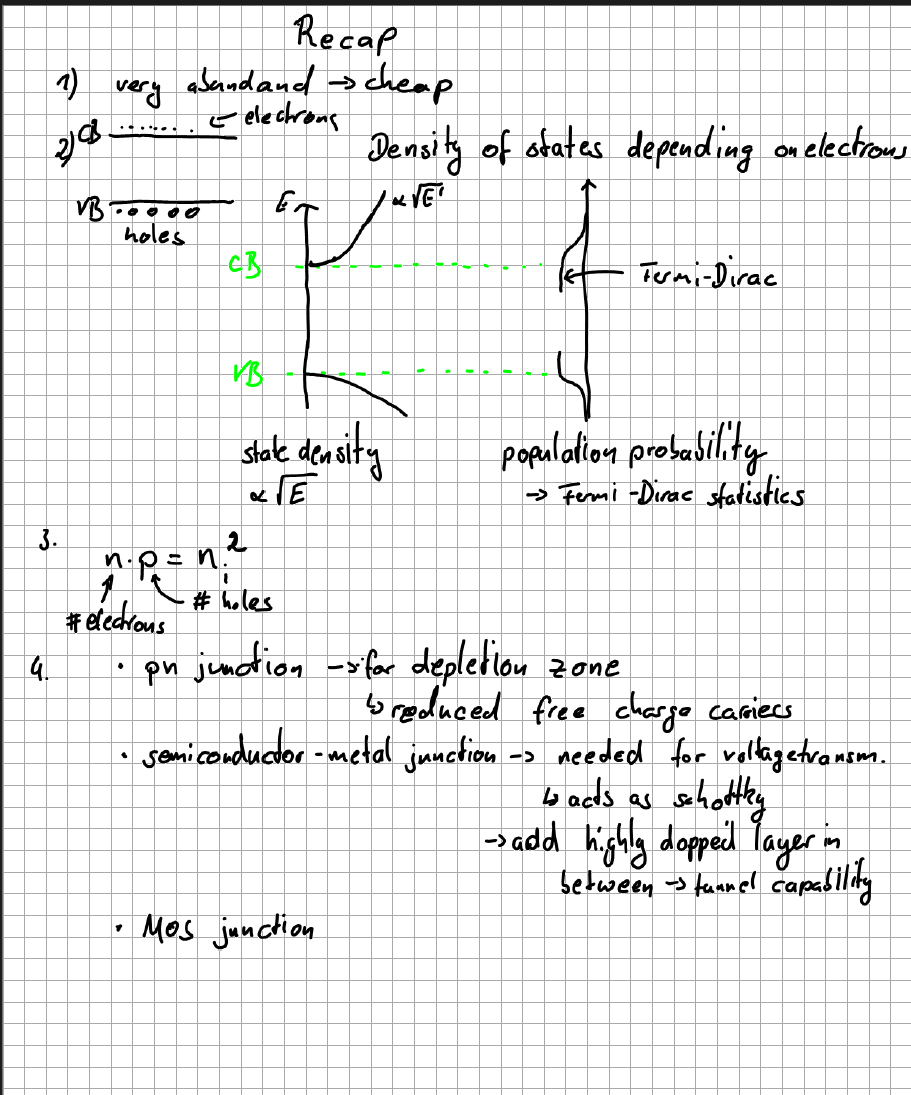 Recap
1) very abundand → cheap
2) CB ← electrons
Density of states depending on electrons
VB
holes
E
∝ √E
CB
Fermi-Dirac
VB
state density
∝ √E
population probability
→ Fermi-Dirac statistics
3.
n · p = nᵢ²
#electrons
# holes
4. · pn junction → for depletion zone
↳ reduced free charge carriers
· semiconductor-metal junction → needed for voltagetransm.
↳ acts as schottky
→ add highly dopped layer in
between → tunnel capability
· MOS junction